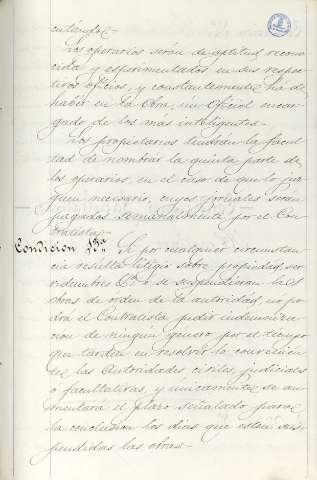 entiende.-
Los operarios serán de aptitud recono-
cida y esperimentados en sus respec-
tivos oficios, y constantemente ha de
haber en la Obra, un Oficial encar-
gado de los más inteligentes.-
Los propietarios tendrán la facul-
tad de nombrar la quinta parte de
los operarios, en el caso de que lo juz-
guen necesario, cuyos jornales serán
pagados semanalmente por el Con-
tratista.-
Condicion 13ª Si por cualquier circunstan-
cia resulta litigio sobre propiedad, ser-
vidumbres &ª ó se suspendieran las
obras de orden de la autoridad, no po-
drá el Contratista pedir indemniza-
cion de ningún genero por el tiempo
que tarden en resolver lo convenien-
te las Autoridades civiles, judiciales
ó facultativas, y unicamente se au-
mentará el plazo señalado para
la conclusion los dias que esten sus-
pendidas las obras.-